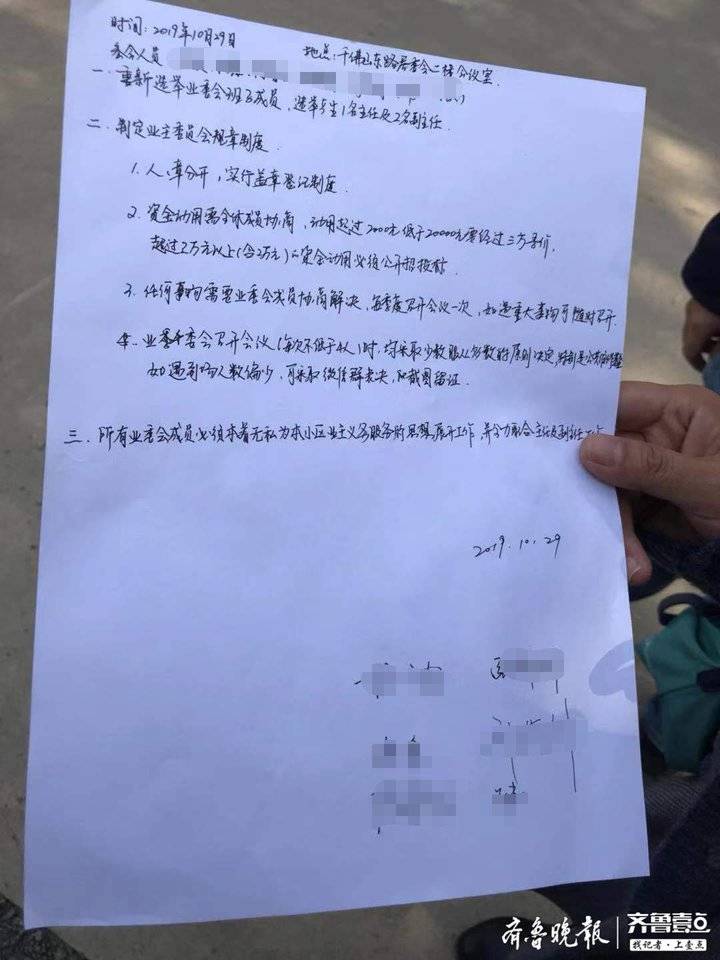 时间：2019年10月29日
地点：千佛山东路居委会二楼会议室.
参会人员
一.重新选举业委会班子成员，选举产生1名主任及2名副主任
二.制定业主委员会规章制度.
1.人、章分开，实行盖章登记制度.
2.资金动用需全体成员协商，动用超过2000元低于20000元需经过三方寻价，
超过2万元以上(含2万元)的资金动用必须公开招投标.
3.任何事项需要业委会成员协商解决，每季度召开会议一次，如遇重大事项可随时召开.
4.业委会召开会议(每次不低于4人)时，均采取少数服从多数的原则决定，特别是
如遇到场人数偏少，可采取微信群表决，及截图留证.
三.所有业委会成员必须本着无私为本小区业主义务服务的思想展开工作，并全力配合主任及副主任工作
2019.10.29
齐鲁晚报
齐鲁壹点
找记者·上壹点